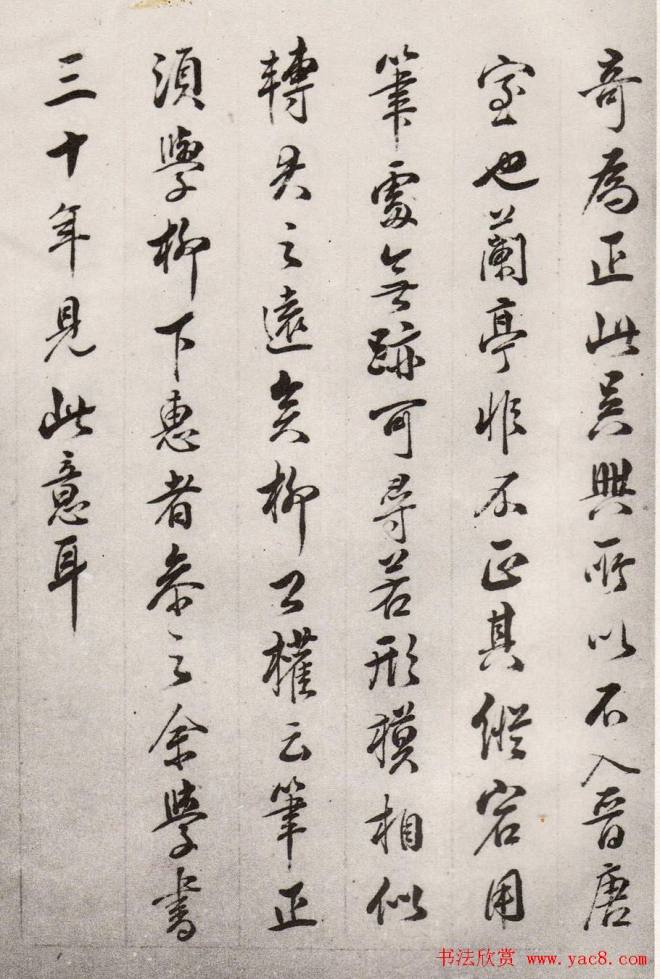 奇為正此吳興所以不入晉唐
室也蘭亭非不正其縱宕用
筆處無跡可尋若形模相似
轉去之遠矣柳公權云筆正
須學柳下惠者參之余學書
三十年見此意耳
书法欣赏 www.yac8.com